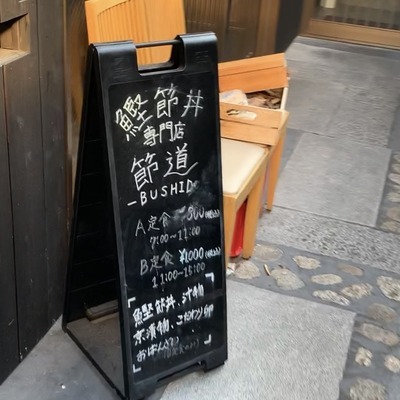 鰹節丼
専門店
節道
-BUSHIDO
A定食 800(税込)
7:00~11:00
B定食 ¥1000(税込)
11:00-15:00
鰹節丼、汁物
京漬物、こだわり卵
おばんざい